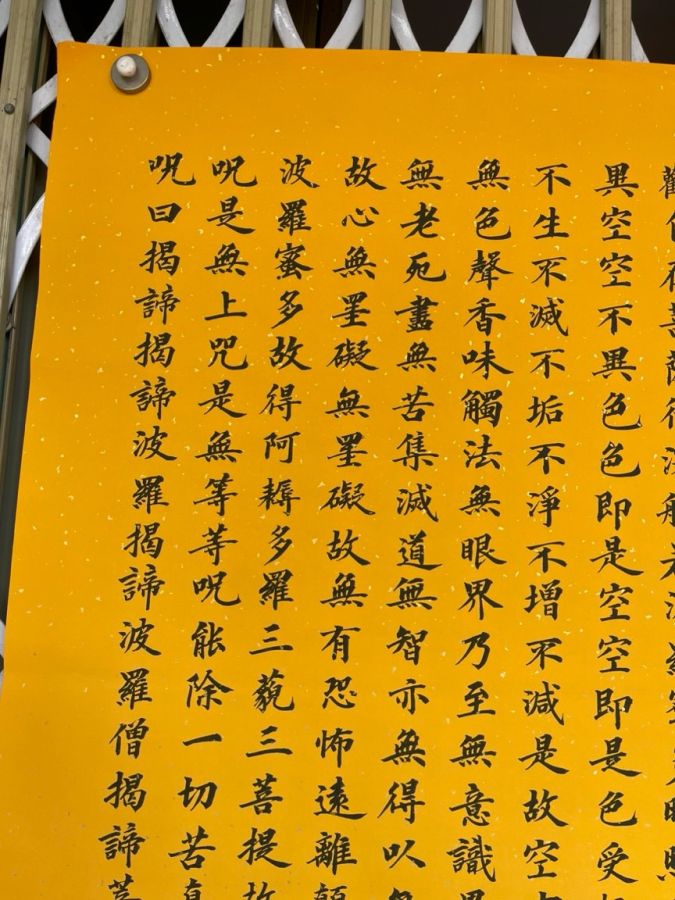 觀自在菩薩行深般若波羅蜜多時照
異空空不異色色即是空空即是色受
不生不滅不垢不淨不增不減是故空
無色聲香味觸法無眼界乃至無意識界
無老死盡無苦集滅道無智亦無得以無
故心無罣礙無罣礙故無有恐怖遠離顛
波羅蜜多故得阿耨多羅三藐三菩提故
呪是無上咒是無等等呪能除一切苦真
呪曰揭諦揭諦波羅揭諦波羅僧揭諦菩